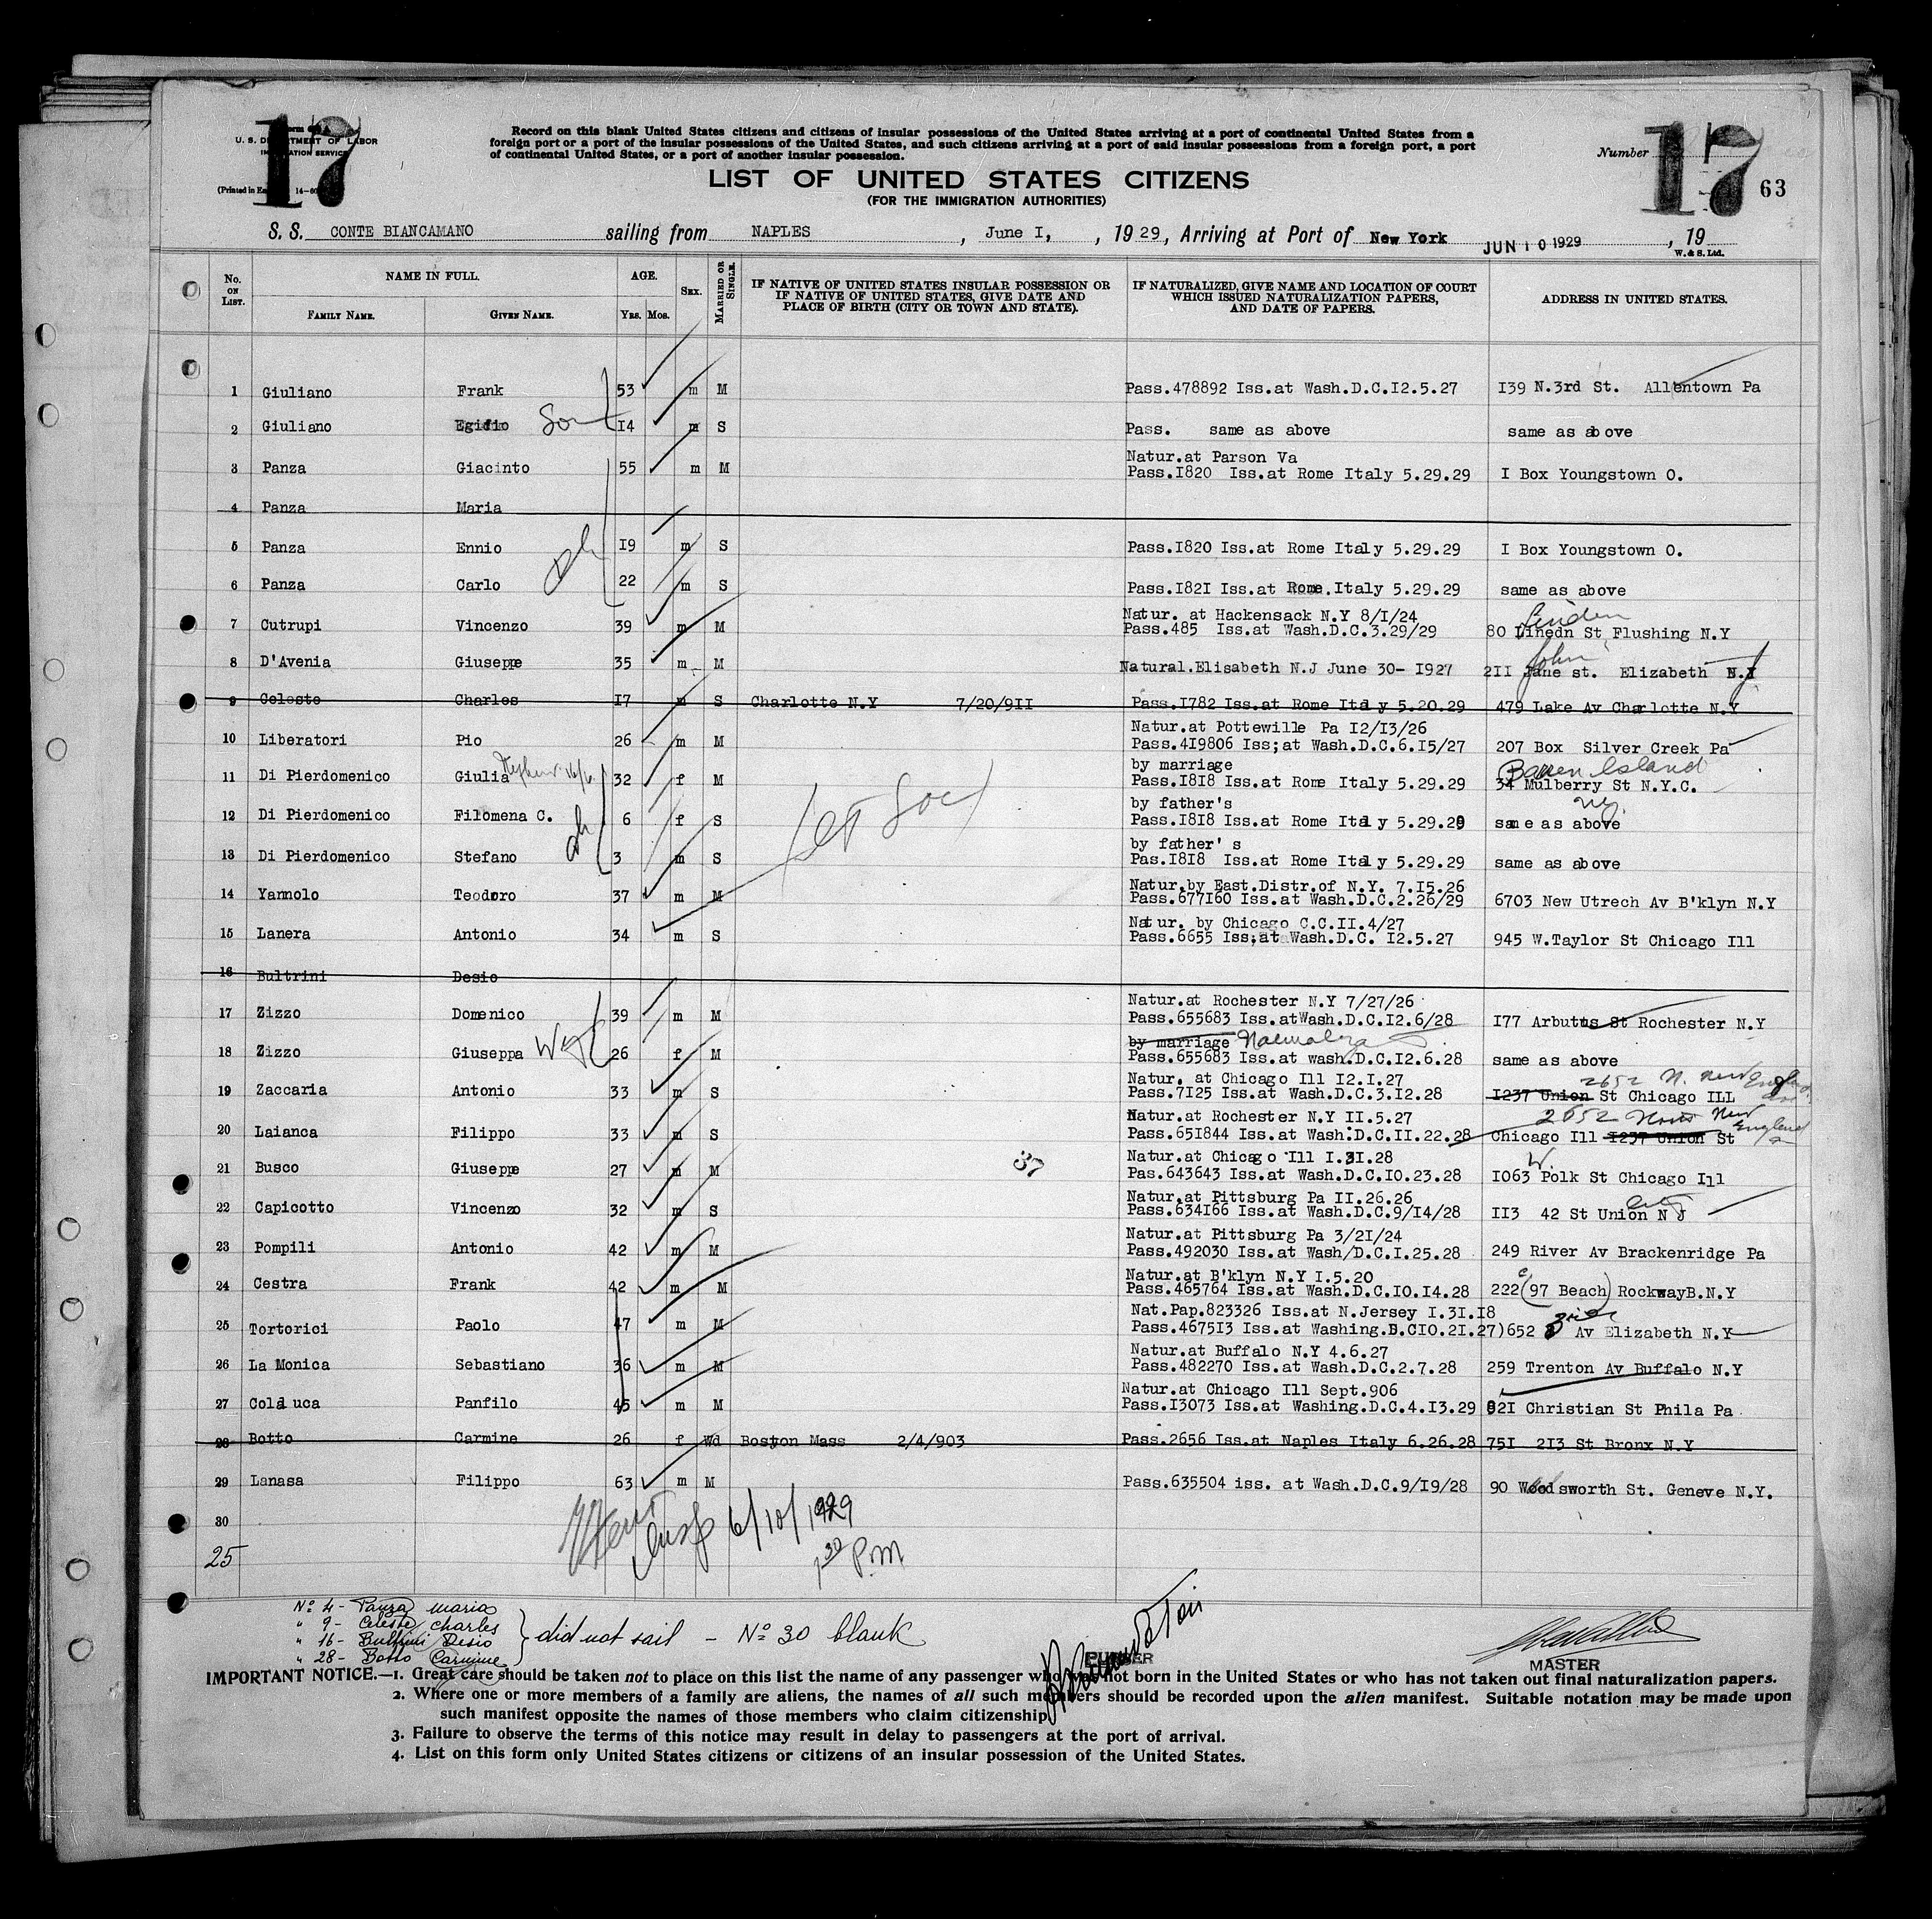 17
U. S. DEPARTMENT OF LABOR
IMMIGRATION SERVICE
(Printed in
14—
Record on this blank United States citizens and citizens of insular possessions of the United States arriving at a port of continental United States from a
foreign port or a port of the insular possessions of the United States, and such citizens arriving at a port of said insular possessions from a foreign port, a port
of continental United States, or a port of another insular possession.
Number 17 63
LIST OF UNITED STATES CITIZENS
(FOR THE IMMIGRATION AUTHORITIES)
S. S. CONTE BIANCAMANO sailing from NAPLES, June I, , 1929, Arriving at Port of New York JUN 10 1929, 19
W. & S. Ltd.
No. ON LIST. NAME IN FULL. AGE. SEX. MARRIED OR SINGLE. IF NATIVE OF UNITED STATES INSULAR POSSESSION OR IF NATIVE OF UNITED STATES, GIVE DATE AND PLACE OF BIRTH (CITY OR TOWN AND STATE). IF NATURALIZED, GIVE NAME AND LOCATION OF COURT WHICH ISSUED NATURALIZATION PAPERS, AND DATE OF PAPERS. ADDRESS IN UNITED STATES.
FAMILY NAME. GIVEN NAME. YRS. MOS.
1 Giuliano Frank 53 m M Pass.478892 Iss.at Wash.D.C.I2.5.27 I39 N.3rd St. Allentown Pa
2 Giuliano Egidio Son I4 m S Pass. same as above same as above
Natur.at Parson Va
3 Panza Giacinto 55 m M Pass.I820 Iss.at Rome Italy 5.29.29 I Box Youngstown O.
4 Panza Maria
5 Panza Ennio I9 m S Pass.I820 Iss.at Rome Italy 5.29.29 I Box Youngstown O.
6 Panza Carlo 22 m S Pass.I82I Iss.at Rome.Italy 5.29.29 same as above
Natur. at Hackensack N.Y 8/I/24 Linden
7 Cutrupi Vincenzo 39 m M Pass.485 Iss.at Wash.D.C.3.29/29 80 Linedn St Flushing N.Y
John
8 D'Avenia Giuseppe 35 m M Natural.Elisabeth N.J June 30- I927 2II Jane st. Elizabeth N.J
9 Celeste Charles I7 m S Charlotte N.Y 7/20/9II Pass.I782 Iss.at Rome Italy 5.20.29 479 Lake Av Charlotte N.Y
Natur.at Pottewille Pa I2/I3/26
10 Liberatori Pio 26 m M Pass.4I9806 Iss;at Wash.D.C.6.I5/27 207 Box Silver Creek Pa
by marriage Barren Island
11 Di Pierdomenico Giulia 32 f M Pass.I8I8 Iss.at Rome Italy 5.29.29 34 Mulberry St N.Y.C.
by father's N.Y.
12 Di Pierdomenico Filomena C. 6 f S Pass.I8I8 Iss.at Rome Italy 5.29.29 same as above
by father' s
13 Di Pierdomenico Stefano 3 m S Pas.I8I8 Iss.at Rome Italy 5.29.29 same as above
Natur.by East.Distr.of N.Y. 7.I5.26
14 Yannolo Teodoro 37 m M Pass.677I60 Iss.at Wash.D.C.2.26/29 6703 New Utrech Av B'klyn N.Y
Natur. by Chicago C.C.II.4/27
15 Lanera Antonio 34 m S Pass.6655 Iss;at Wash.D.C. I2.5.27 945 W.Taylor St Chicago Ill
16 Bultrini Desio
Natur.at Rochester N.Y 7/27/26
17 Zizzo Domenico 39 m M Pass.655683 Iss.atWash.D.C.I2.6/28 I77 Arbutus St Rochester N.Y
by marriage
18 Zizzo Giuseppa 26 f M Pass.655683 Iss.at wash.D.C.I2.6.28 same as above
Natur. at Chicago Ill I2.I.27 2652 N. New England
19 Zaccaria Antonio 33 m S Pass.7I25 Iss.at Wash.D.C.3.I2.28 I237 Union St Chicago ILL
Natur.at Rochester N.Y II.5.27 2652 North New England
20 Laianca Filippo 33 m S Pass.65I844 Iss.at Wash.D.C.II.22.28 Chicago Ill I237 Union St
37
Natur.at Chicago Ill I.3I.28 W.
21 Busco Giuseppe 27 m M Pas.643643 Iss.at Wash.D.C.IO.23.28 I063 Polk St Chicago Ill
Natur.at Pittsburg Pa II.26.26 City
22 Capicotto Vincenzo 32 m S Pass.634I66 Iss.at Wash.D.C.9/I4/28 II3 42 St Union N J
Natur.at Pittsburg Pa 3/2I/24
23 Pompili Antonio 42 m M Pass.492030 Iss.at Wash/D.C.I.25.28 249 River Av Brackenridge Pa
Natur.at B'klyn N.Y I.5.20
24 Cestra Frank 42 m M Pass.465764 Iss.at Wash.D.C.IO.I4.28 222 (97 Beach) RockwayB.N.Y
Nat.Pap.823326 Iss.at N.Jersey I.3I.I8
25 Tortorici Paolo 47 m M Pass.4675I3 Iss.at Washing.D.CIO.2I.27)652 3rd Av Elizabeth N.Y
Natur.at Buffalo N.Y 4.6.27
26 La Monica Sebastiano 36 m M Pass.482270 Iss.at Wash.D.C.2.7.28 259 Trenton Av Buffalo N.Y
Natur.at Chicago Ill Sept.906
27 Colaluca Panfilo 45 m M Pass.I3073 Iss.at Washing.D.C.4.I3.29 82I Christian St Phila Pa
28 Botto Carmine 26 f Wd Boston Mass 2/4/903 Pass.2656 Iss.at Naples Italy 6.26.28 75I 2I3 St Bronx N.Y
29 Lanasa Filippo 63 m M Pass.635504 iss. at Wash.D.C.9/I9/28 90 Woodsworth St. Geneve N.Y.
30
25
6/10/1929
1 30 P.M
No 4 - Panza Maria
" 9 - Celeste Charles
" 16 - Bultrini Desio
" 28 - Botto Carmine
did not sail - No 30 blank
PURSER
MASTER
IMPORTANT NOTICE.—1. Great care should be taken not to place on this list the name of any passenger who was not born in the United States or who has not taken out final naturalization papers.
2. Where one or more members of a family are aliens, the names of all such members should be recorded upon the alien manifest. Suitable notation may be made upon
such manifest opposite the names of those members who claim citizenship.
3. Failure to observe the terms of this notice may result in delay to passengers at the port of arrival.
4. List on this form only United States citizens or citizens of an insular possession of the United States.